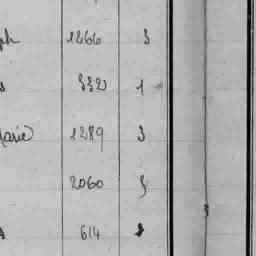 ph 1266 3
s 332 1
Marie 1289 3
2060 3
614